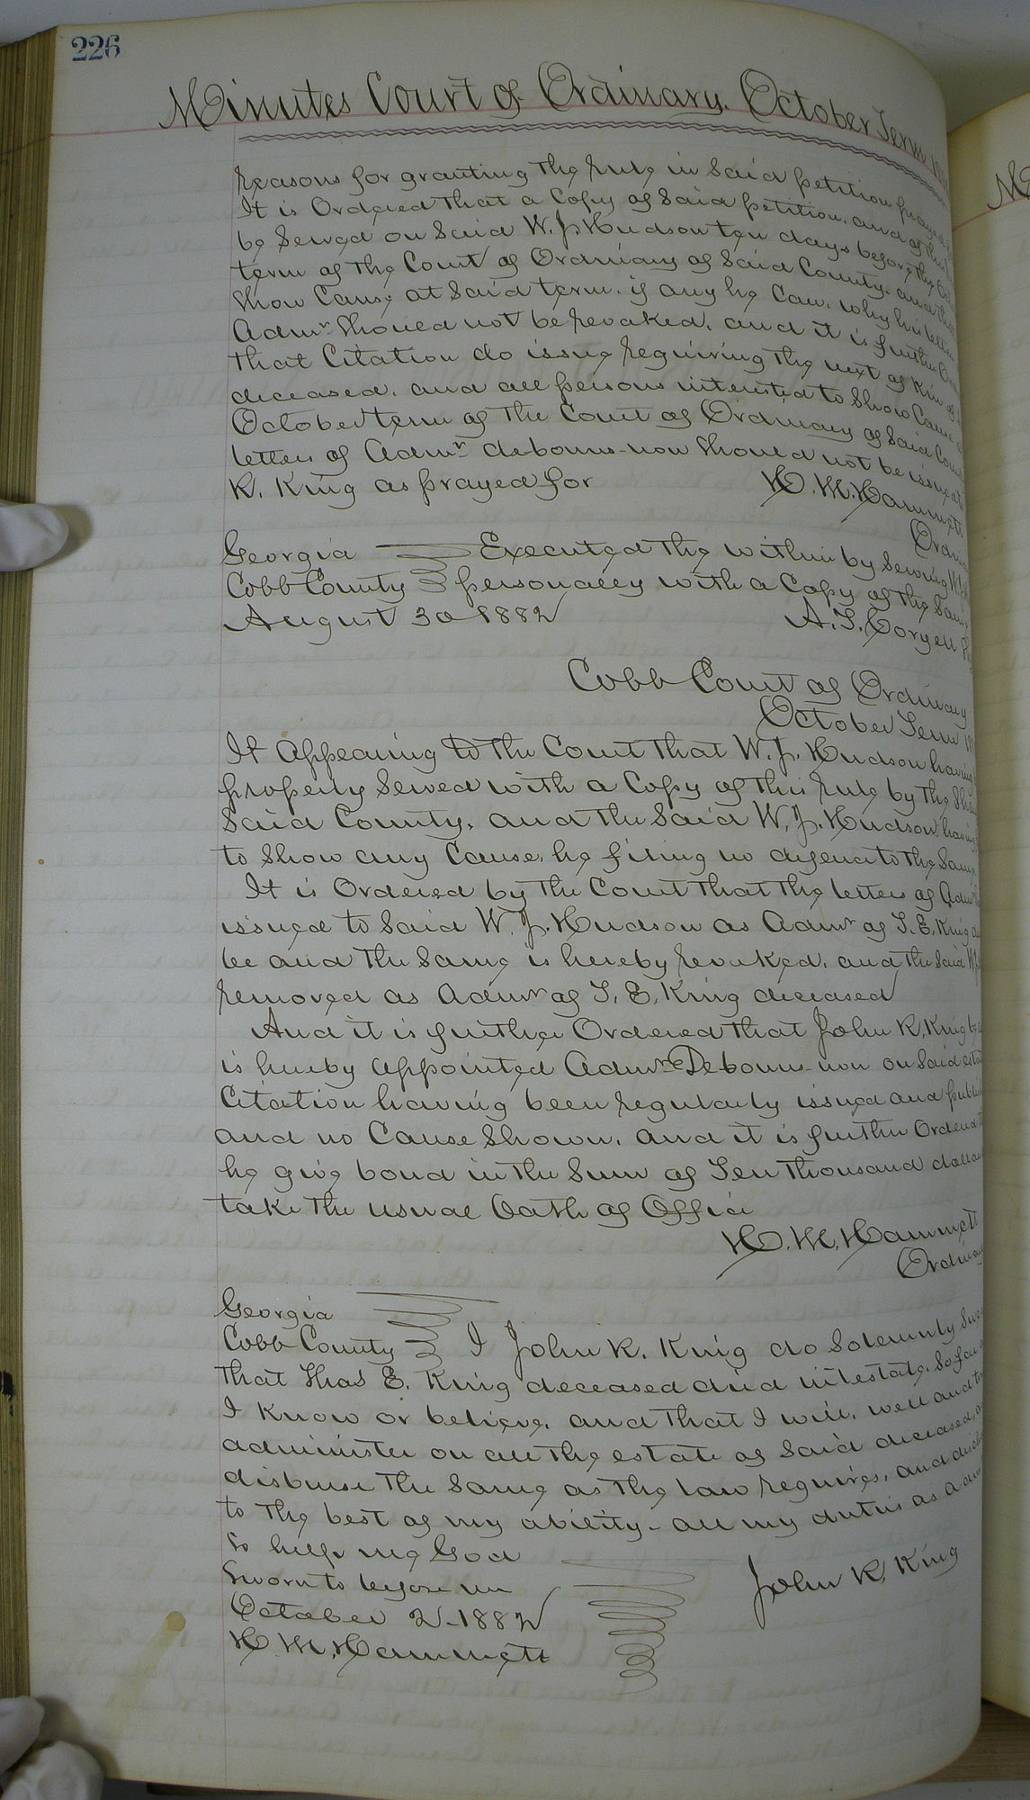 226
Minutes Court of Ordinary. October Term
reasons for granting the rule in said petition
It is Ordered that a Copy of said petition, and of this
be served on said W. J. Hudson ten days before the
term of the Court of Ordinary of said County, and
Show Cause at said term, if any he can, why his
Admr. should not be revoked, and it is further
that Citation do issue requiring the next of Kin of
deceased, and all persons interested to Show Cause
October term of the Court of Ordinary of said
letters of Admr. debonus-non should not be issued
K. King as prayed for H. M. Hammett
Georgia Executed the within by serving
Cobb County personally with a Copy of the
August 30 1882 A. T. Coryell
Cobb Court of Ordinary
October Term
It appearing to the Court that W. J. Hudson having
properly served with a Copy of this rule by the
said County, and the said W. J. Hudson
to show any Cause, he filing no defence to the same
It is Ordered by the Court that the letters of
issued to said W. J. Hudson as Admr of T. E. King
be and the same is hereby revoked, and the said
removed as Admr of T. E. King deceased
And it is further Ordered that John K. King
is hereby appointed Admr Debonus-non on said
Citation having been regularly issued and
and no Cause shown, and it is further
he give bond in the sum of Ten Thousand
take the usual Oath of Office
H. M. Hammett
Georgia
Cobb County I John K. King do Solemnly
that Thas E. King deceased died intestate, so far
I know or believe, and that I will, well and
administer on all the estate of said deceased,
disburse the same as the law requires, and
to the best of my ability- all my duties as
So help me God
Sworn to before me John K. King
October 2 1882
H. M. Hammett